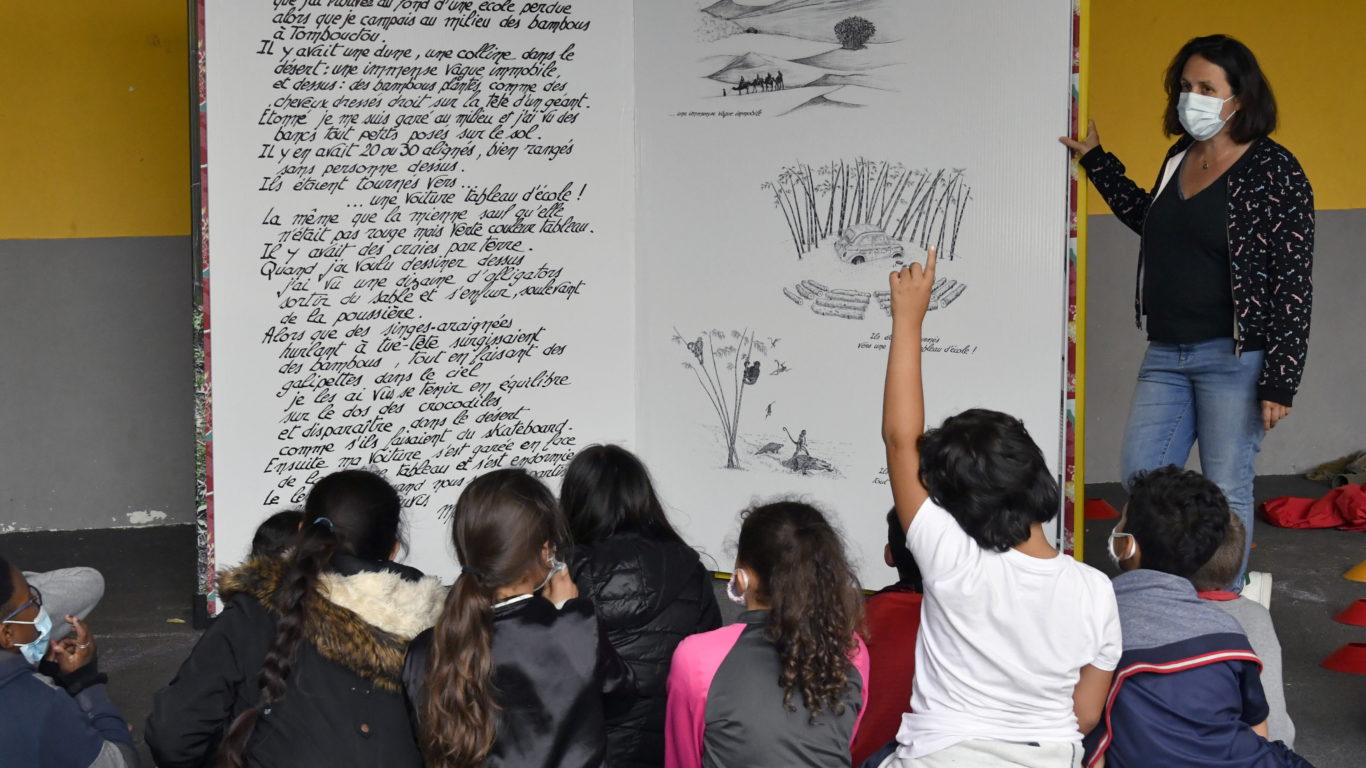 que j'ai trouvés au fond d'une école perdue
alors que je campais au milieu des bambous
à Tombouctou.
Il y avait une dune, une colline dans le
désert: une immense vague immobile,
et dessus: des bambous plantés comme des
cheveux dressés droit sur la tête d'un géant.
Étonné je me suis garé au milieu et j'ai vu des
bancs tout petits posés sur le sol.
Il y en avait 20 ou 30 alignés, bien rangés
sans personne dessus.
Ils étaient tournés vers...
... une voiture tableau d'école!
La même que la mienne sauf qu'elle
n'était pas rouge mais verte couleur tableau.
Il y avait des craies par terre.
Quand j'ai voulu dessiner dessus
j'ai vu une dizaine d'alligators
sortir du sable et s'enfuir, soulevant
de la poussière.
Alors que des singes-araignées
hurlant à tue-tête surgissaient
des bambous, tout en faisant des
galipettes dans le ciel
je les ai vus se tenir en équilibre
sur le dos des crocodiles
et disparaître dans le désert
comme s'ils faisaient du skateboard.
Ensuite ma voiture s'est garée en face
de le tableau et s'est endormie
Le quand nous
... une immense vague immobile
Ils
vers une tableau d'école!